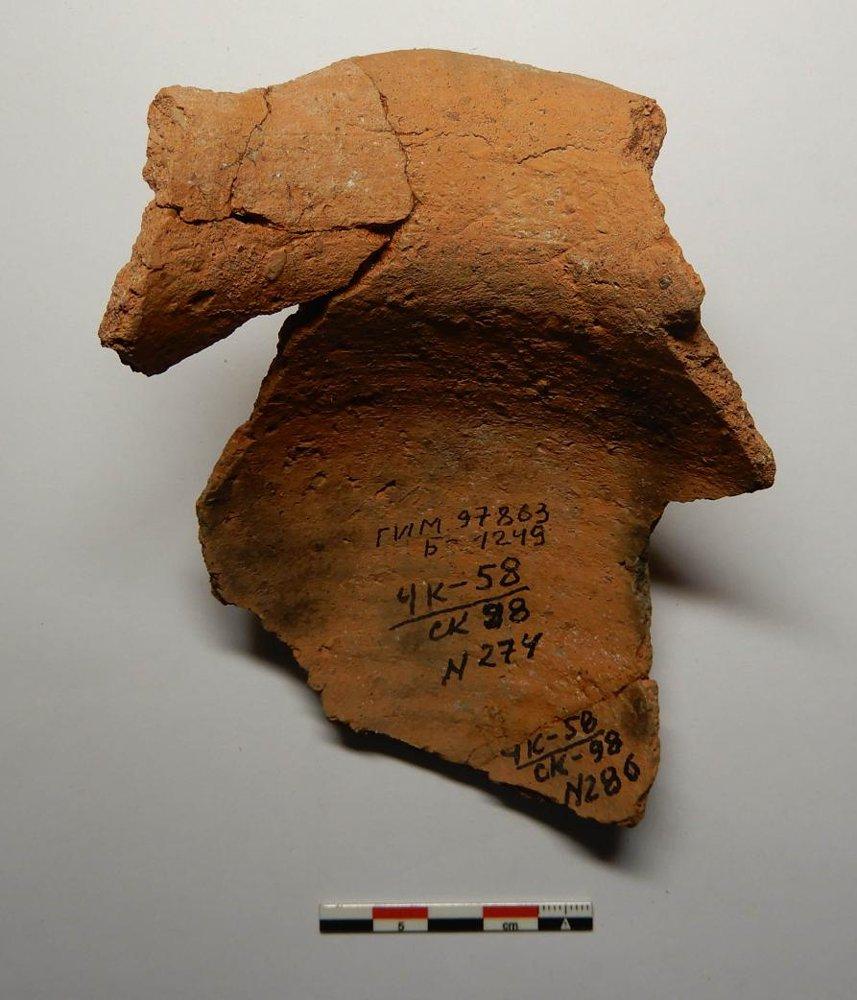 ГИМ 97863
Б-1249
ЧК-58
СК 98
N 274
ЧК-58
СК-98
N286
5 cm